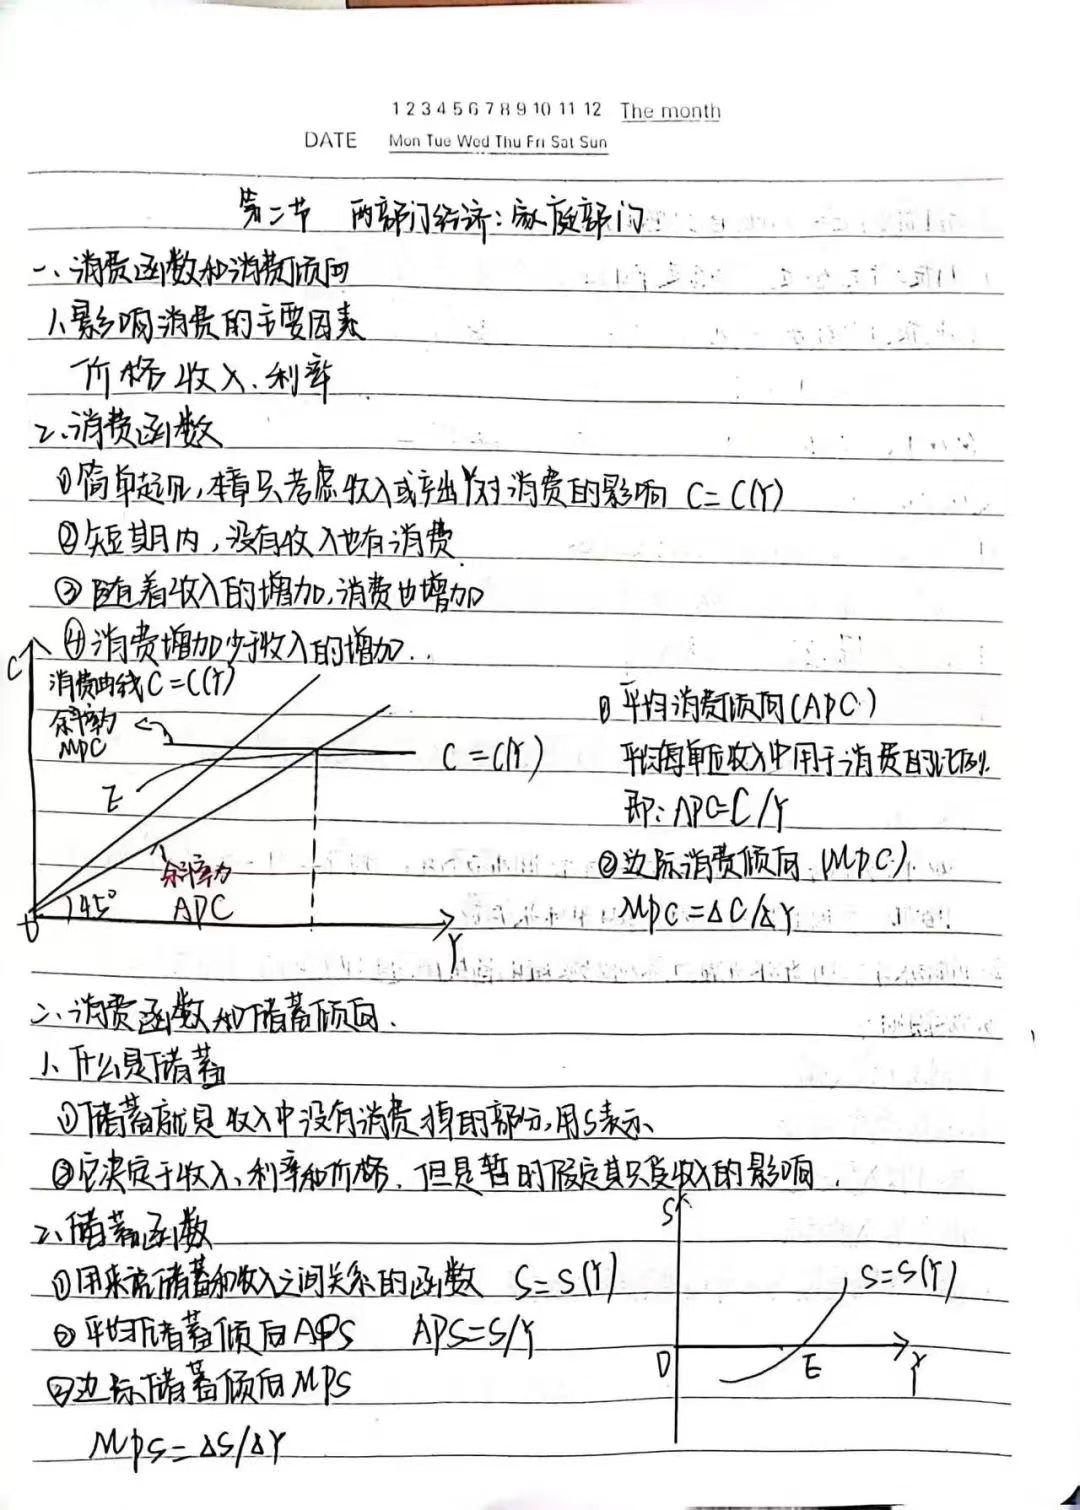 1 2 3 4 5 6 7 8 9 10 11 12 The month
DATE Mon Tue Wed Thu Fri Sat Sun
第二节 两部门经济:家庭部门
一、消费函数和消费倾向
1、影响消费的主要因素
价格、收入、利率
2、消费函数
①简单起见,本章只考虑收入或产出Y对消费的影响 C=C(Y)
②短期内,没有收入也有消费
③随着收入的增加,消费也增加
④消费增加少于收入的增加..
C
消费曲线C=C(Y)
斜率为
MPC
E
C=C(Y)
斜率为
APC
45°
0
Y
①平均消费倾向(APC)
平均每单位收入中用于消费的比例.
即:APC=C/Y
②边际消费倾向(MPC)
MPC=ΔC/ΔY
二、消费函数和储蓄倾向.
1、什么是储蓄
①储蓄就是收入中没有消费掉的部分,用S表示、
②它决定于收入、利率和价格,但是暂时假定其只受收入的影响.
2、储蓄函数
①用来说储蓄和收入之间关系的函数 S=S(Y)
②平均储蓄倾向APS APS=S/Y
③边际储蓄倾向MPS
MPS=ΔS/ΔY
S
S=S(Y)
0
E
Y